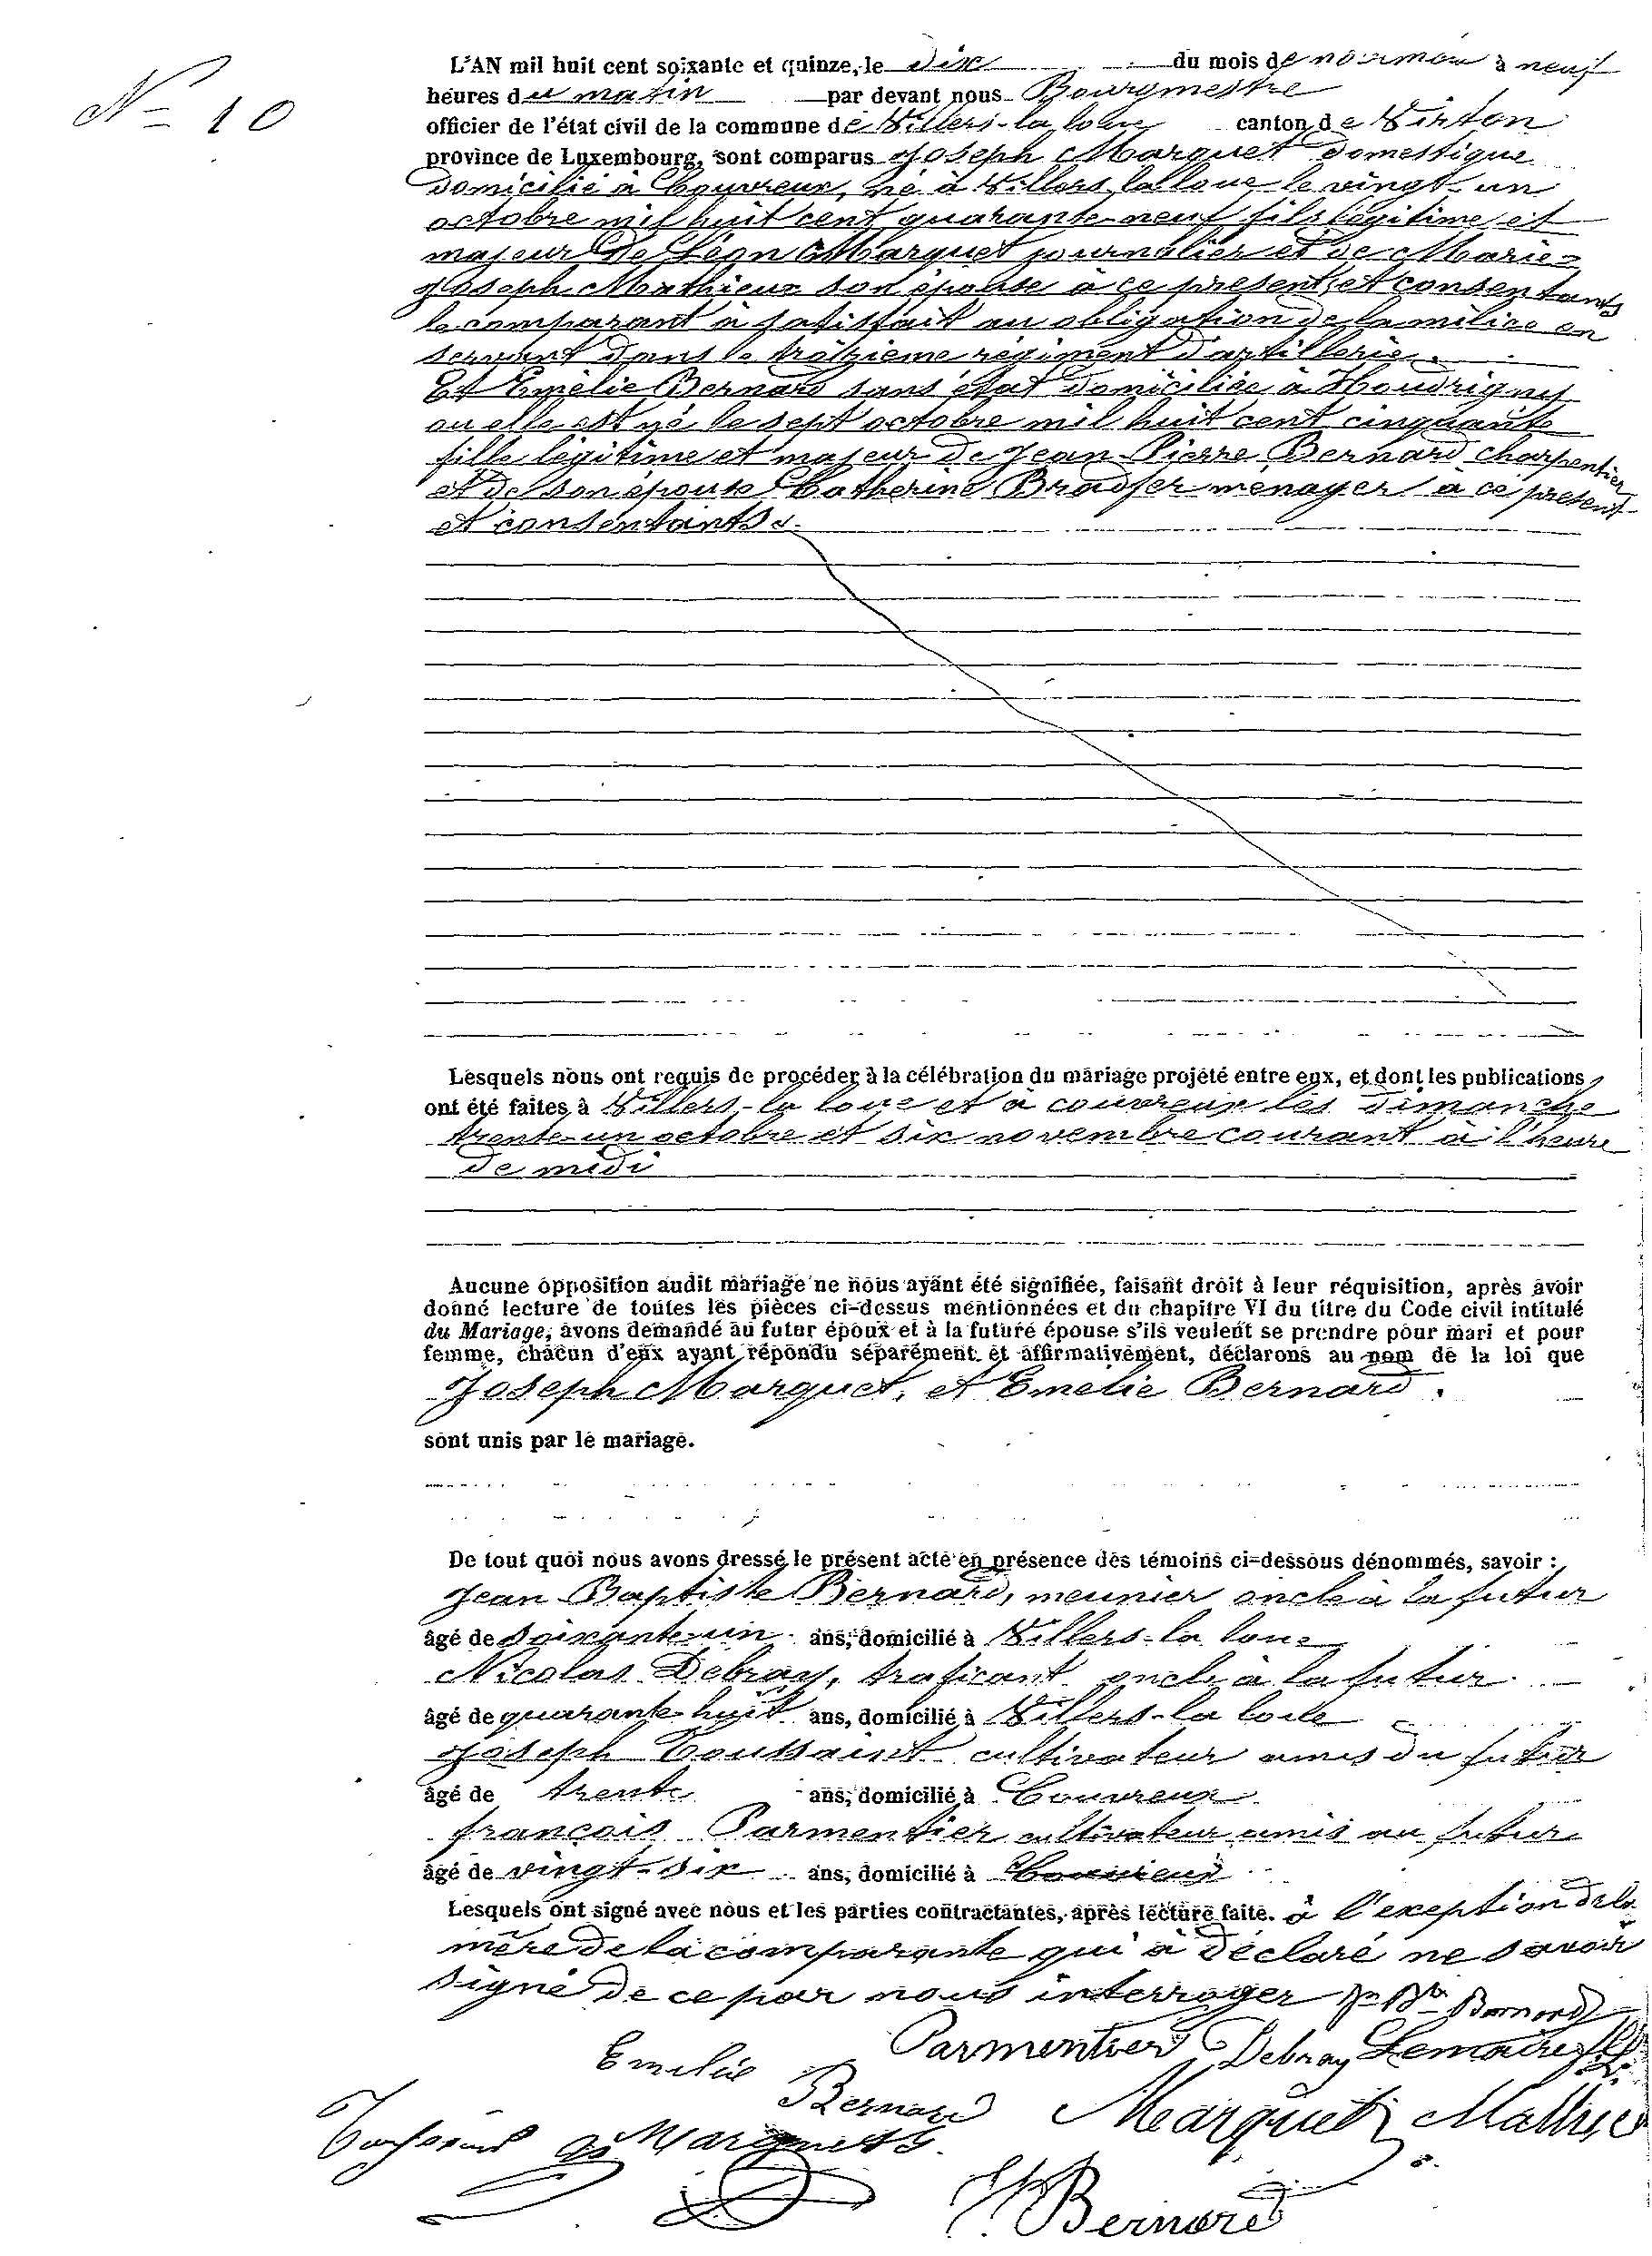 N° 10
L'AN mil huit cent soixante et quinze, le dix du mois de novembre à neuf
heures du matin par devant nous Bourgmestre
officier de l'état civil de la commune de Villers-la-loue canton de Virton
province de Luxembourg, sont comparus Joseph Marquet domestique
domicilié à Couvreux, né à Villers la loue le vingt-un
octobre mil huit cent quarante-neuf fils légitime et
majeur de Léon Marquet journalier et de Marie-
Joseph Mathieux son épouse à ce présent et consentants
le comparant à satisfait au obligation de la milice en
servant dans le troizième régiment d'artillerie.
Et Emélie Bernard sans état domiciliée à Houdrigny
ou elle est né le sept octobre mil huit cent cinquante
fille légitime et majeur de Jean-Pierre Bernard charpentier
et de son épouse Catherine Bradfer menager à ce présent
et consentants.
Lesquels nous ont requis de procéder à la célébration du mariage projeté entre eux, et dont les publications
ont été faites à Villers-la loue et à couvreux les dimanche
trente-un octobre et six novembre courant à l'heure
de midi
Aucune opposition audit mariage ne nous ayant été signifiée, faisant droit à leur réquisition, après avoir
donné lecture de toutes les pièces ci-dessus mentionnées et du chapitre VI du titre du Code civil intitulé
du Mariage, avons demandé au futur époux et à la future épouse s'ils veulent se prendre pour mari et pour
femme, chacun d'eux ayant répondu séparément et affirmativement, déclarons au nom de la loi que
Joseph Marquet, et Emelie Bernard.
sont unis par le mariage.
De tout quoi nous avons dressé le présent acte en présence des témoins ci-dessous dénommés, savoir :
Jean Baptiste Bernard, meunier oncle à la futur
âgé de soixante-un ans, domicilié à Villers-la loue
Nicolas Debray, traficant oncle à la futur
âgé de quarante-huit ans, domicilié à Villers-la loue
Joseph Toussaint cultivateur amis du futur
âgé de trente ans, domicilié à Couvreux
françois Parmentier cultivateur amis au futur
âgé de vingt-six ans, domicilié à Couvreux
Lesquels ont signé avec nous et les parties contractantes, après lecture faite. à l'exeption de la
mère de la comparante qui à déclaré ne savoir
signé de ce par nous interroger Jn Bte Bernard
Parmentier Debray Lemaire
Emelie
Bernard Marquet Mathieu
Toussaint Marquet
Bernard